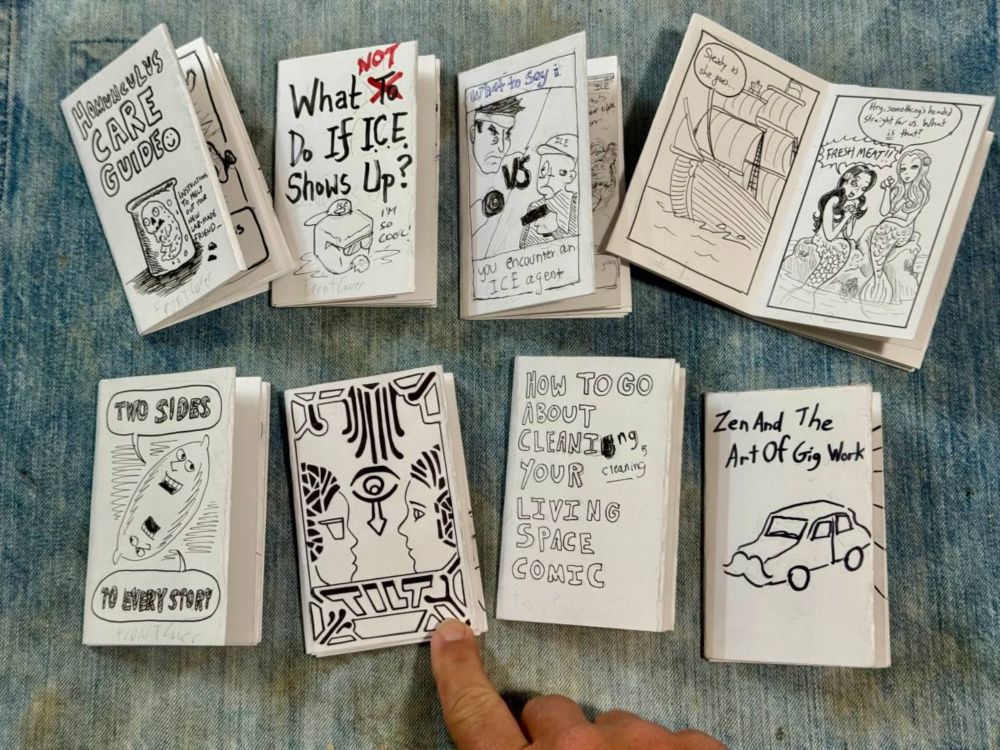 HOMUNCULUS
CARE
GUIDE
INSTRUCTIONS
TO HELP
OUT YOUR
NEW
LAB-MADE
FRIEND
Front Cover
NOT
What To
Do If ICE
Shows Up?
ICE
I'M
SO
COOL!
Front Cover
What to Say if
ICE
VS
you encounter an
ICE agent
Steady as
she goes.
Hey, something's headed
straight for us. What
is that?
FRESH MEAT!!
TWO SIDES
TO EVERY STORY
Front Cover
TILT
HOW TO GO
ABOUT
CLEANIng,
cleaning
YOUR
LIVING
SPACE
COMIC
Zen And The
Art Of Gig Work